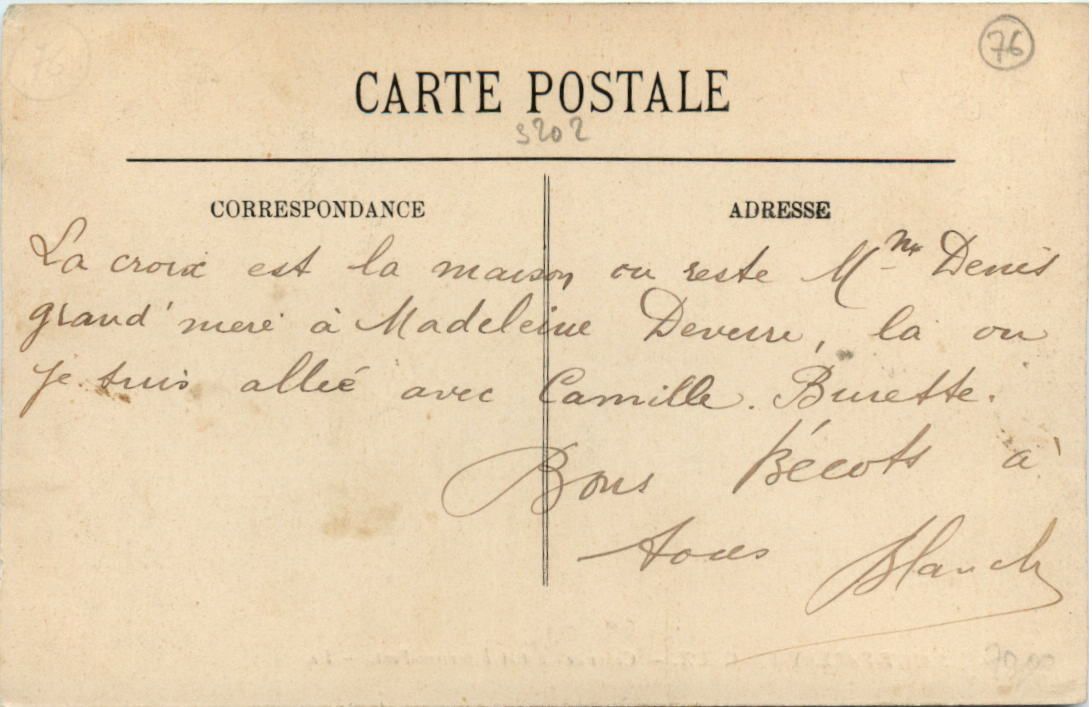 76
CARTE POSTALE
3202
CORRESPONDANCE
ADRESSE
La croix est la maison ou reste Mme Denis
grand'mere à Madeleine Deverre, la ou
je suis alleé avec Camille. Burette.
Bons Bécots à
tous Blanch
70,00